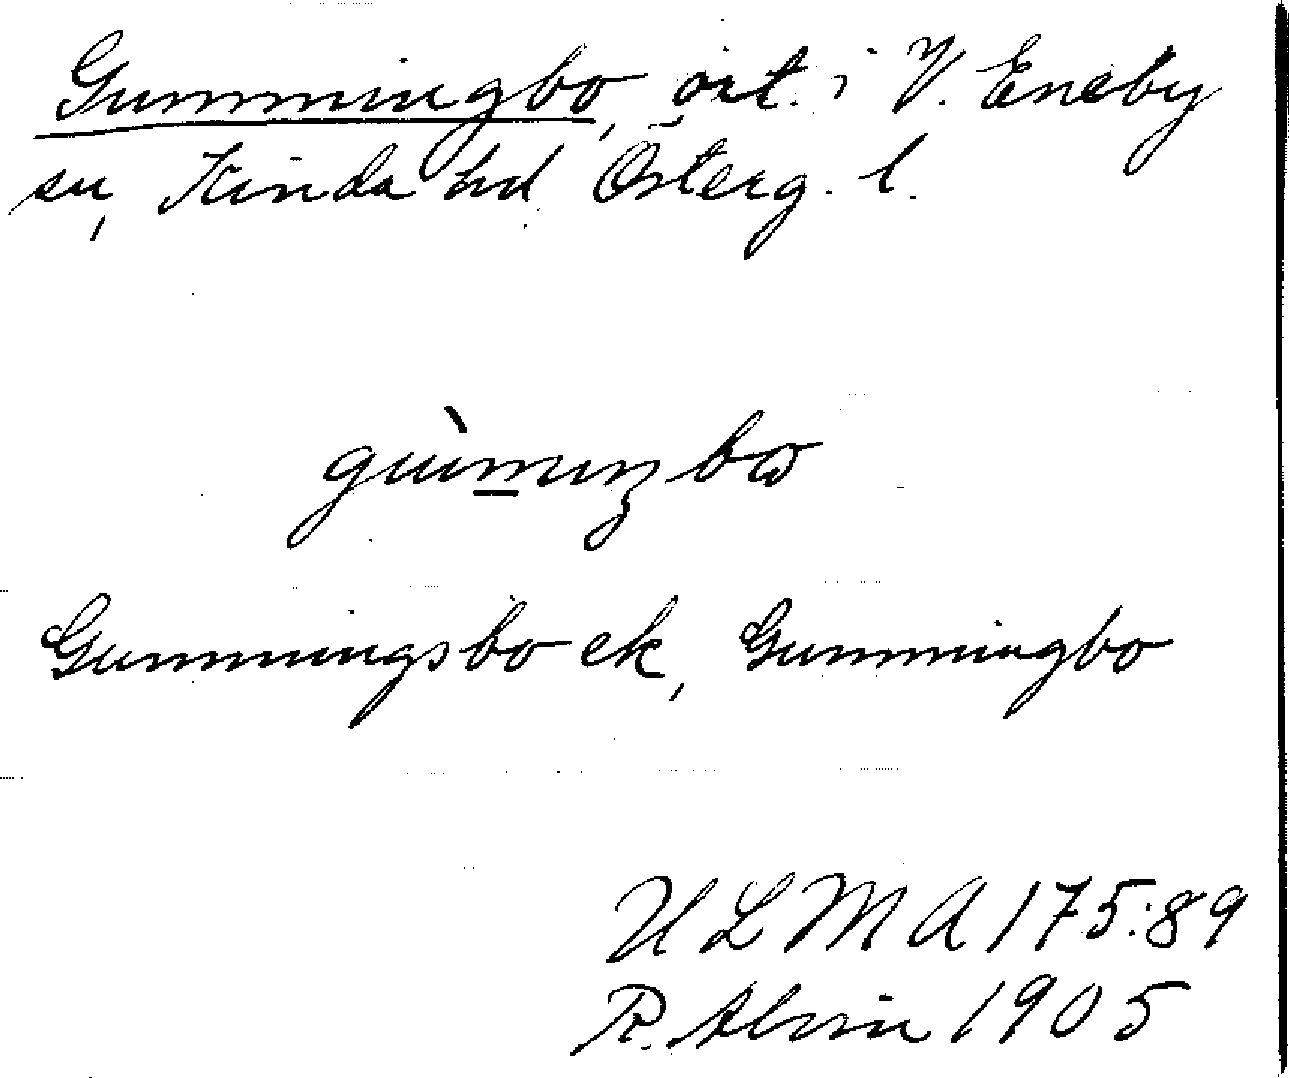 Gummingbo, ört. i V. Eneby
sn, Kinda hd Österg. l.
gùmıŋbω
Gummingsbo ek, Gummingbo
ULMA 175:89
R. Alvin 1905